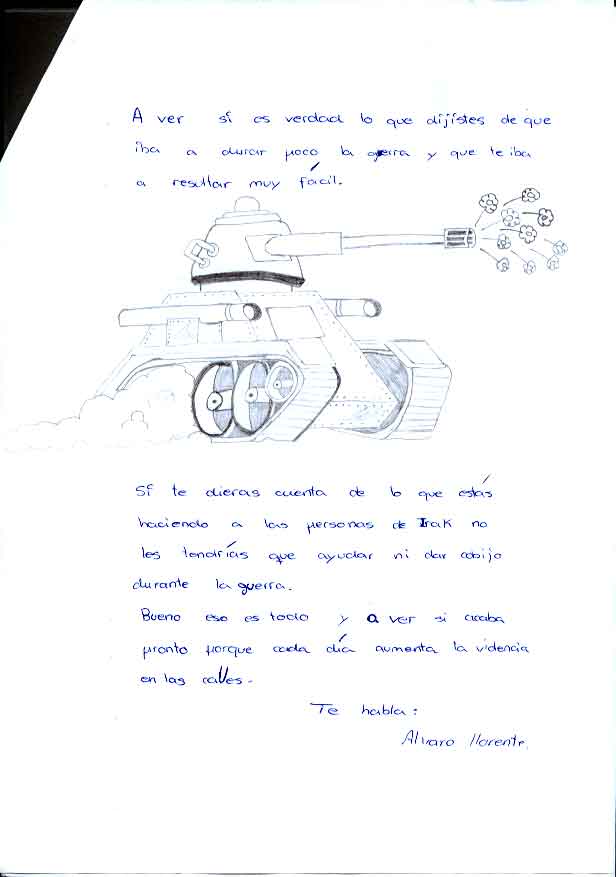 A ver sí es verdad lo que dijístes de que
iba a durar poco la gerra y que te iba
a resultar muy fácil.
Sí te dieras cuenta de lo que estás
haciendo a las personas de Irak no
les tendrías que ayudar ni dar cobijo
durante la guerra.
Bueno eso es todo y a ver si acaba
pronto porque cada día aumenta la videncia
en las calles.
Te habla:
Alvaro Llorente.